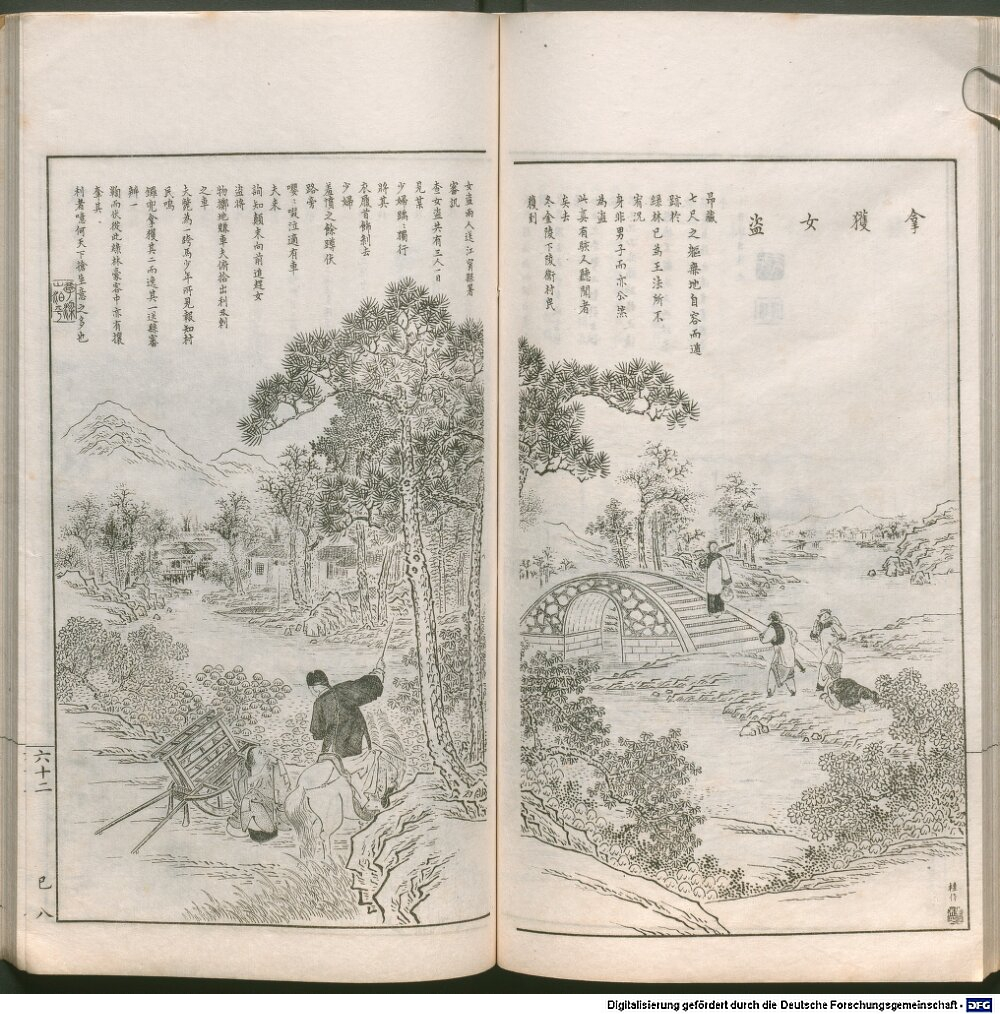 拿獲女盜
昂藏
七尺之軀無地自容而遁
跡於
綠林已為王法所不
宥況
身非男子而亦公然
為盜
此真有駭人聽聞者
矣去
冬金陵下陵衛村民
獲到
女盜兩人送江甯縣署
審訊
查女盜共有三人一日
見某
少婦踽踽獨行
將其
衣履首飾剝去
少婦
羞憤之餘蹲伏
路旁
嚶嚶啜泣適有車
夫來
詢知顛末向前追趕女
盜將
物擲地賺車夫俯拾出利刃刺
之車
夫斃為一跨馬少年所見報知村
民鳴
鑼兜拿獲其二而逸其一送縣審
辦一
鞫而伏從此綠林豪客中亦有攘
奪其
利者噫何天下搶生意之多也
六十二
巳
八
Digitalisierung gefördert durch die Deutsche Forschungsgemeinschaft - DFG